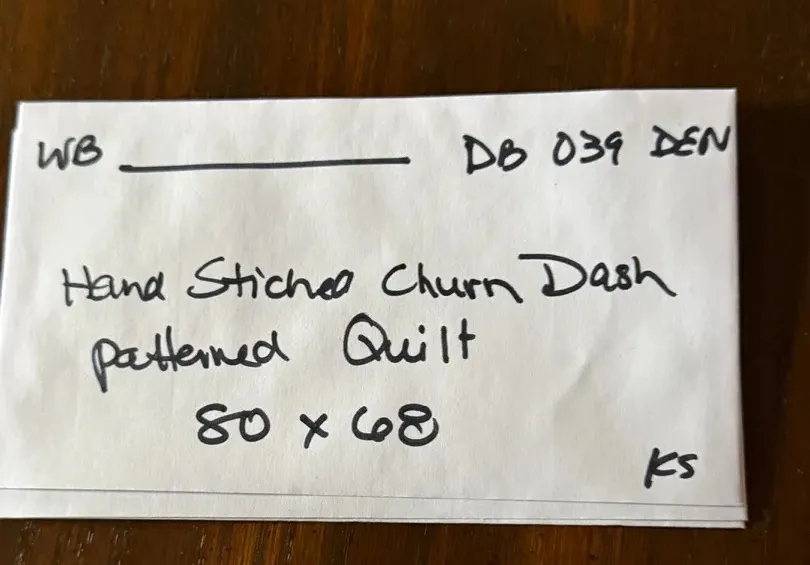 WB ________ DB 039 DEN
Hand Stiched Churn Dash
patterned Quilt
80 x 68
KS